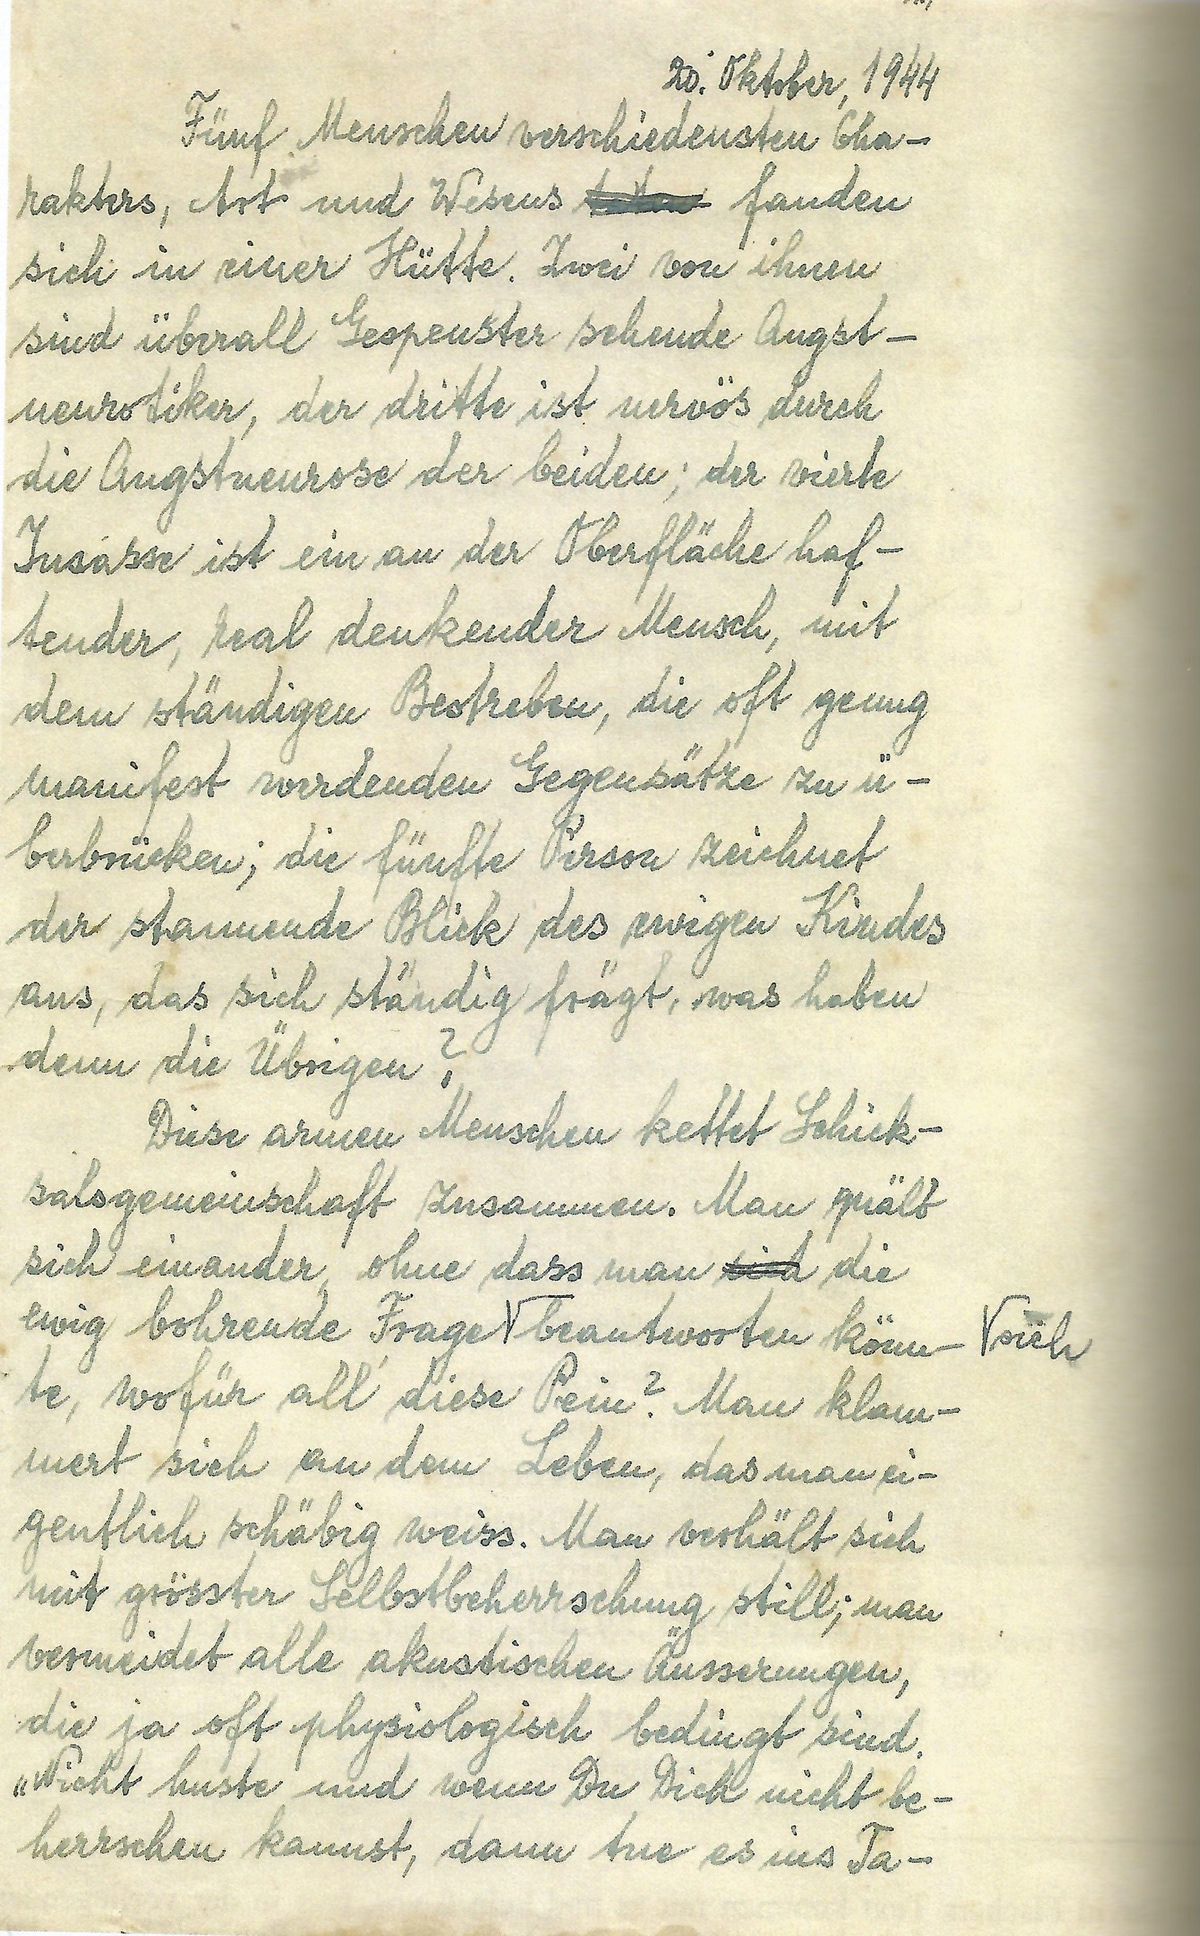 20. Oktober, 1944
Fünf Menschen verschiedensten Cha-
rakters, Art und Wesens fanden
sich in einer Hütte. Zwei von ihnen
sind überall Gespenster sehende Angst-
neurotiker, der dritte ist nervös durch
die Angstneurose der beiden; der vierte
Insasse ist ein an der Oberfläche haf-
tender, real denkender Mensch, mit
dem ständigen Bestreben, die oft genug
manifest werdenden Gegensätze zu ü-
berbrücken; die fünfte Person zeichnet
der staunende Blick des ewigen Kindes
aus, das sich ständig frägt, was haben
denn die Übrigen?
Diese armen Menschen kettet Schick-
salsgemeinschaft zusammen. Man quält
sich einander, ohne dass man die
ewig bohrende Frage √ beantworten könn- √ sich
te, wofür all' diese Pein? Man klam-
mert sich an dem Leben, das man ei-
gentlich schäbig weiss. Man verhält sich
mit grösster Selbstbeherrschung still; man
vermeidet alle akustischen Äusserungen,
die ja oft physiologisch bedingt sind.
„Nicht huste und wenn Du Dich nicht be-
herrschen kannst, dann tue es ins Ta-